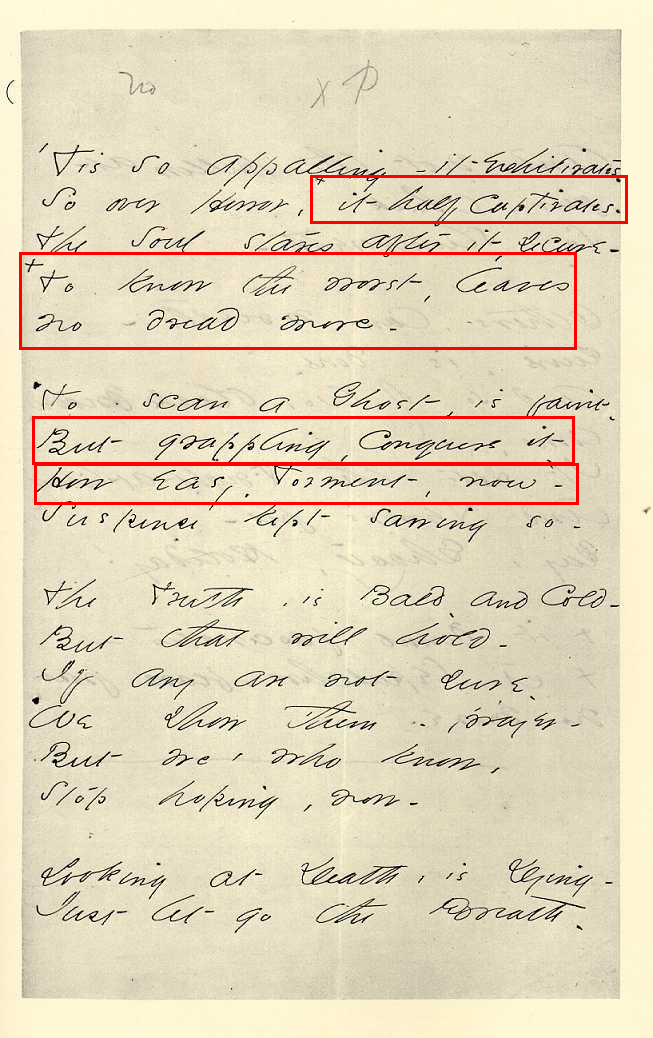 no x P
'Tis so appalling - it exhilirates.
So over Horror, + it half captivates.
The Soul stares after it, secure -
+ To know the worst, leaves
no dread more -
To scan a Ghost, is faint -
But grappling, conquers it -
How easy, Torment, now -
Suspense kept sawing so -
The Truth, is Bald and Cold -
But that will hold -
If any are not sure -
We show them - prayer -
But we, who know,
Stop hoping, now -
Looking at Death, is Dying -
Just let go the Breath -